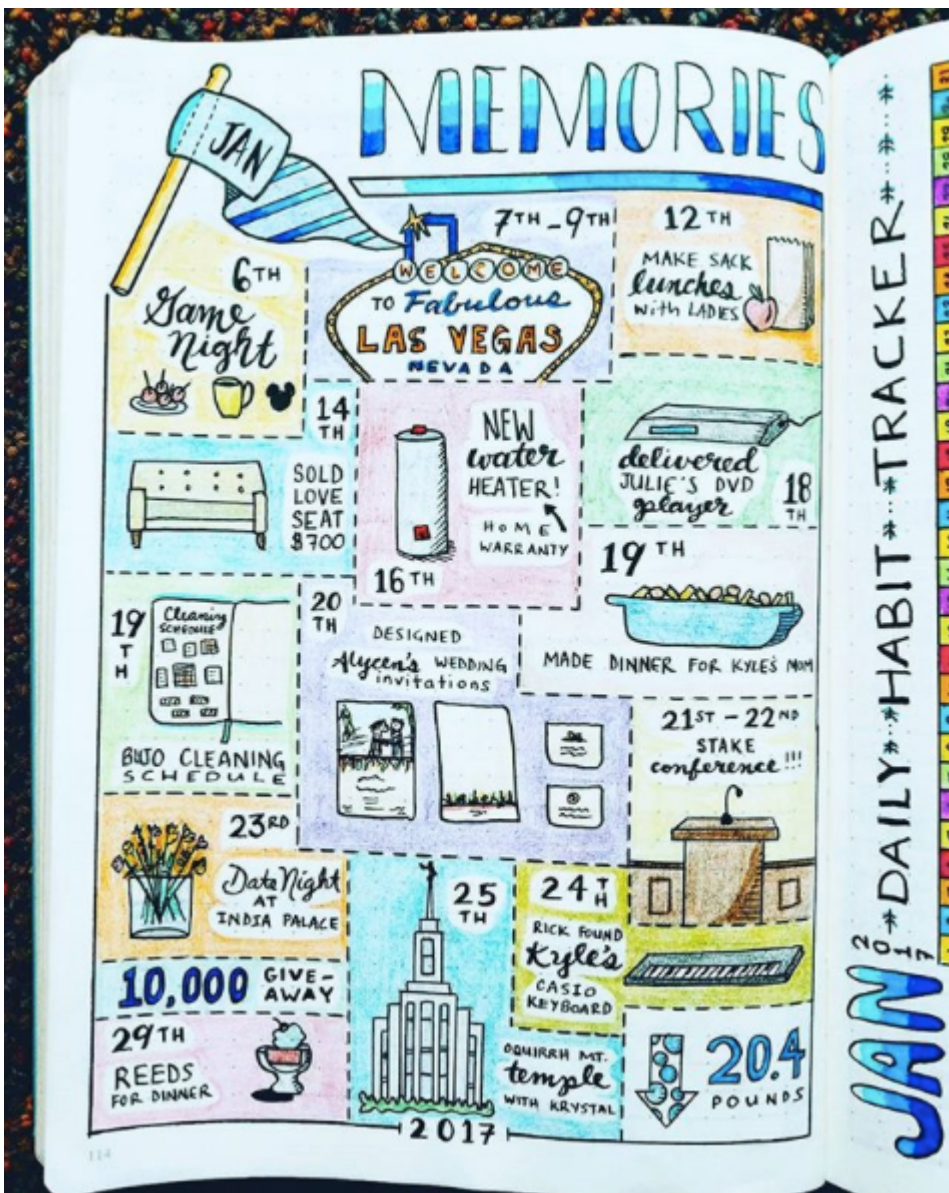 JAN
MEMORIES
6TH
Game
Night
7TH - 9TH
WELCOME
TO Fabulous
LAS VEGAS
NEVADA
12TH
MAKE SACK
lunches
with LADIES
14
TH
SOLD
LOVE
SEAT
$700
NEW
water
HEATER!
HOME
WARRANTY
16TH
delivered
JULIE'S DVD
player
18
TH
19TH
MADE DINNER FOR KYLE'S MOM
19
T
H
Cleaning
SCHEDULE
BUJO CLEANING
SCHEDULE
20
TH
DESIGNED
Alycen's WEDDING
invitations
21ST - 22ND
STAKE
conference!!!
23RD
Date Night
AT
INDIA PALACE
10,000 GIVE-
AWAY
29TH
REEDS
FOR DINNER
25
TH
OQUIRRH MT.
temple
WITH KRYSTAL
24TH
RICK FOUND
Kyle's
CASIO
KEYBOARD
20.4
POUNDS
2017
114
JAN
2017
DAILY HABIT TRACKER